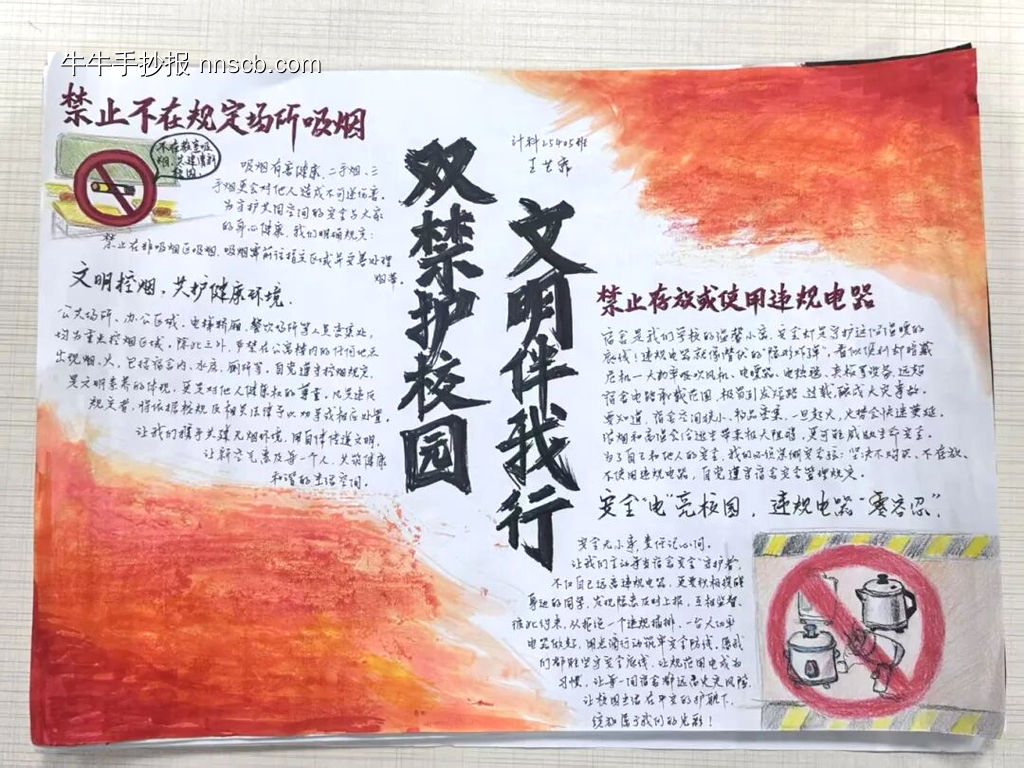 牛牛手抄报 nnscb.com
禁止不在规定场所吸烟
不在教室吸
烟,共建清新
校园.
吸烟有害健康,二手烟、三
手烟更会对他人造成不可逆伤害。
为守护共同空间的安全与大家
的身心健康,我们明确规定:
禁止在非吸烟区吸烟,吸烟需前往指定区域并妥善处理
烟蒂。
文明控烟,共护健康环境.
公共场所、办公区域、电梯轿厢、餐饮场所等人员密集处,
均为重点控烟区域,除此之外,严禁在公寓楼内的任何地点
出现烟、火,包括宿舍内、水房、厕所等,自觉遵守控烟规定,
是文明素养的体现,更是对他人健康权的尊重,凡是违反
规定者,将依据校规及相关法律予以劝导或相应处置。
让我们携手共建无烟环境,用自律传递文明,
让新空气惠及每一个人,共筑健康
和谐的生活空间。
双禁护校园
文明伴我行
计科25405班
禁止存放或使用违规电器
宿舍是我们学校的温馨小窝,安全却是守护这份温暖的
底线!违规电器就像潜伏的“隐形炸弹”,看似便利却暗藏
危机—大功率吹风机、电煮器、电热毯、夹板等设备,远超
宿舍电路承载范围,极易引发短路、过载,酿成火灾事故。
要知道,宿舍空间狭小、物品密集,一旦起火,火势会快速蔓延,
浓烟和高温会给逃生带来极大阻碍,更可能威胁生命安全。
为了自己和他人的安全,我们必须紧绷安全弦:坚决不购买、不存放、
不使用违规电器,自觉遵守宿舍安全管理规定。
安全“电”亮校园,违规电器“零容忍”.
安全无小事,责任记心间。
让我们主动争当宿舍安全“守护者”,
不仅自己远离违规电器,更要积极提醒
身边的同学,发现隐患及时上报,互相监督、
彼此约束,从拒绝一个违规插排、一台大功率
电器做起,用点滴行动筑牢安全防线。愿我
们都能坚守安全底线,让规范用电成为
习惯,让每一间宿舍都远离火灾风险,
让校园生活在平安的护航下,
绽放属于我们的光彩!